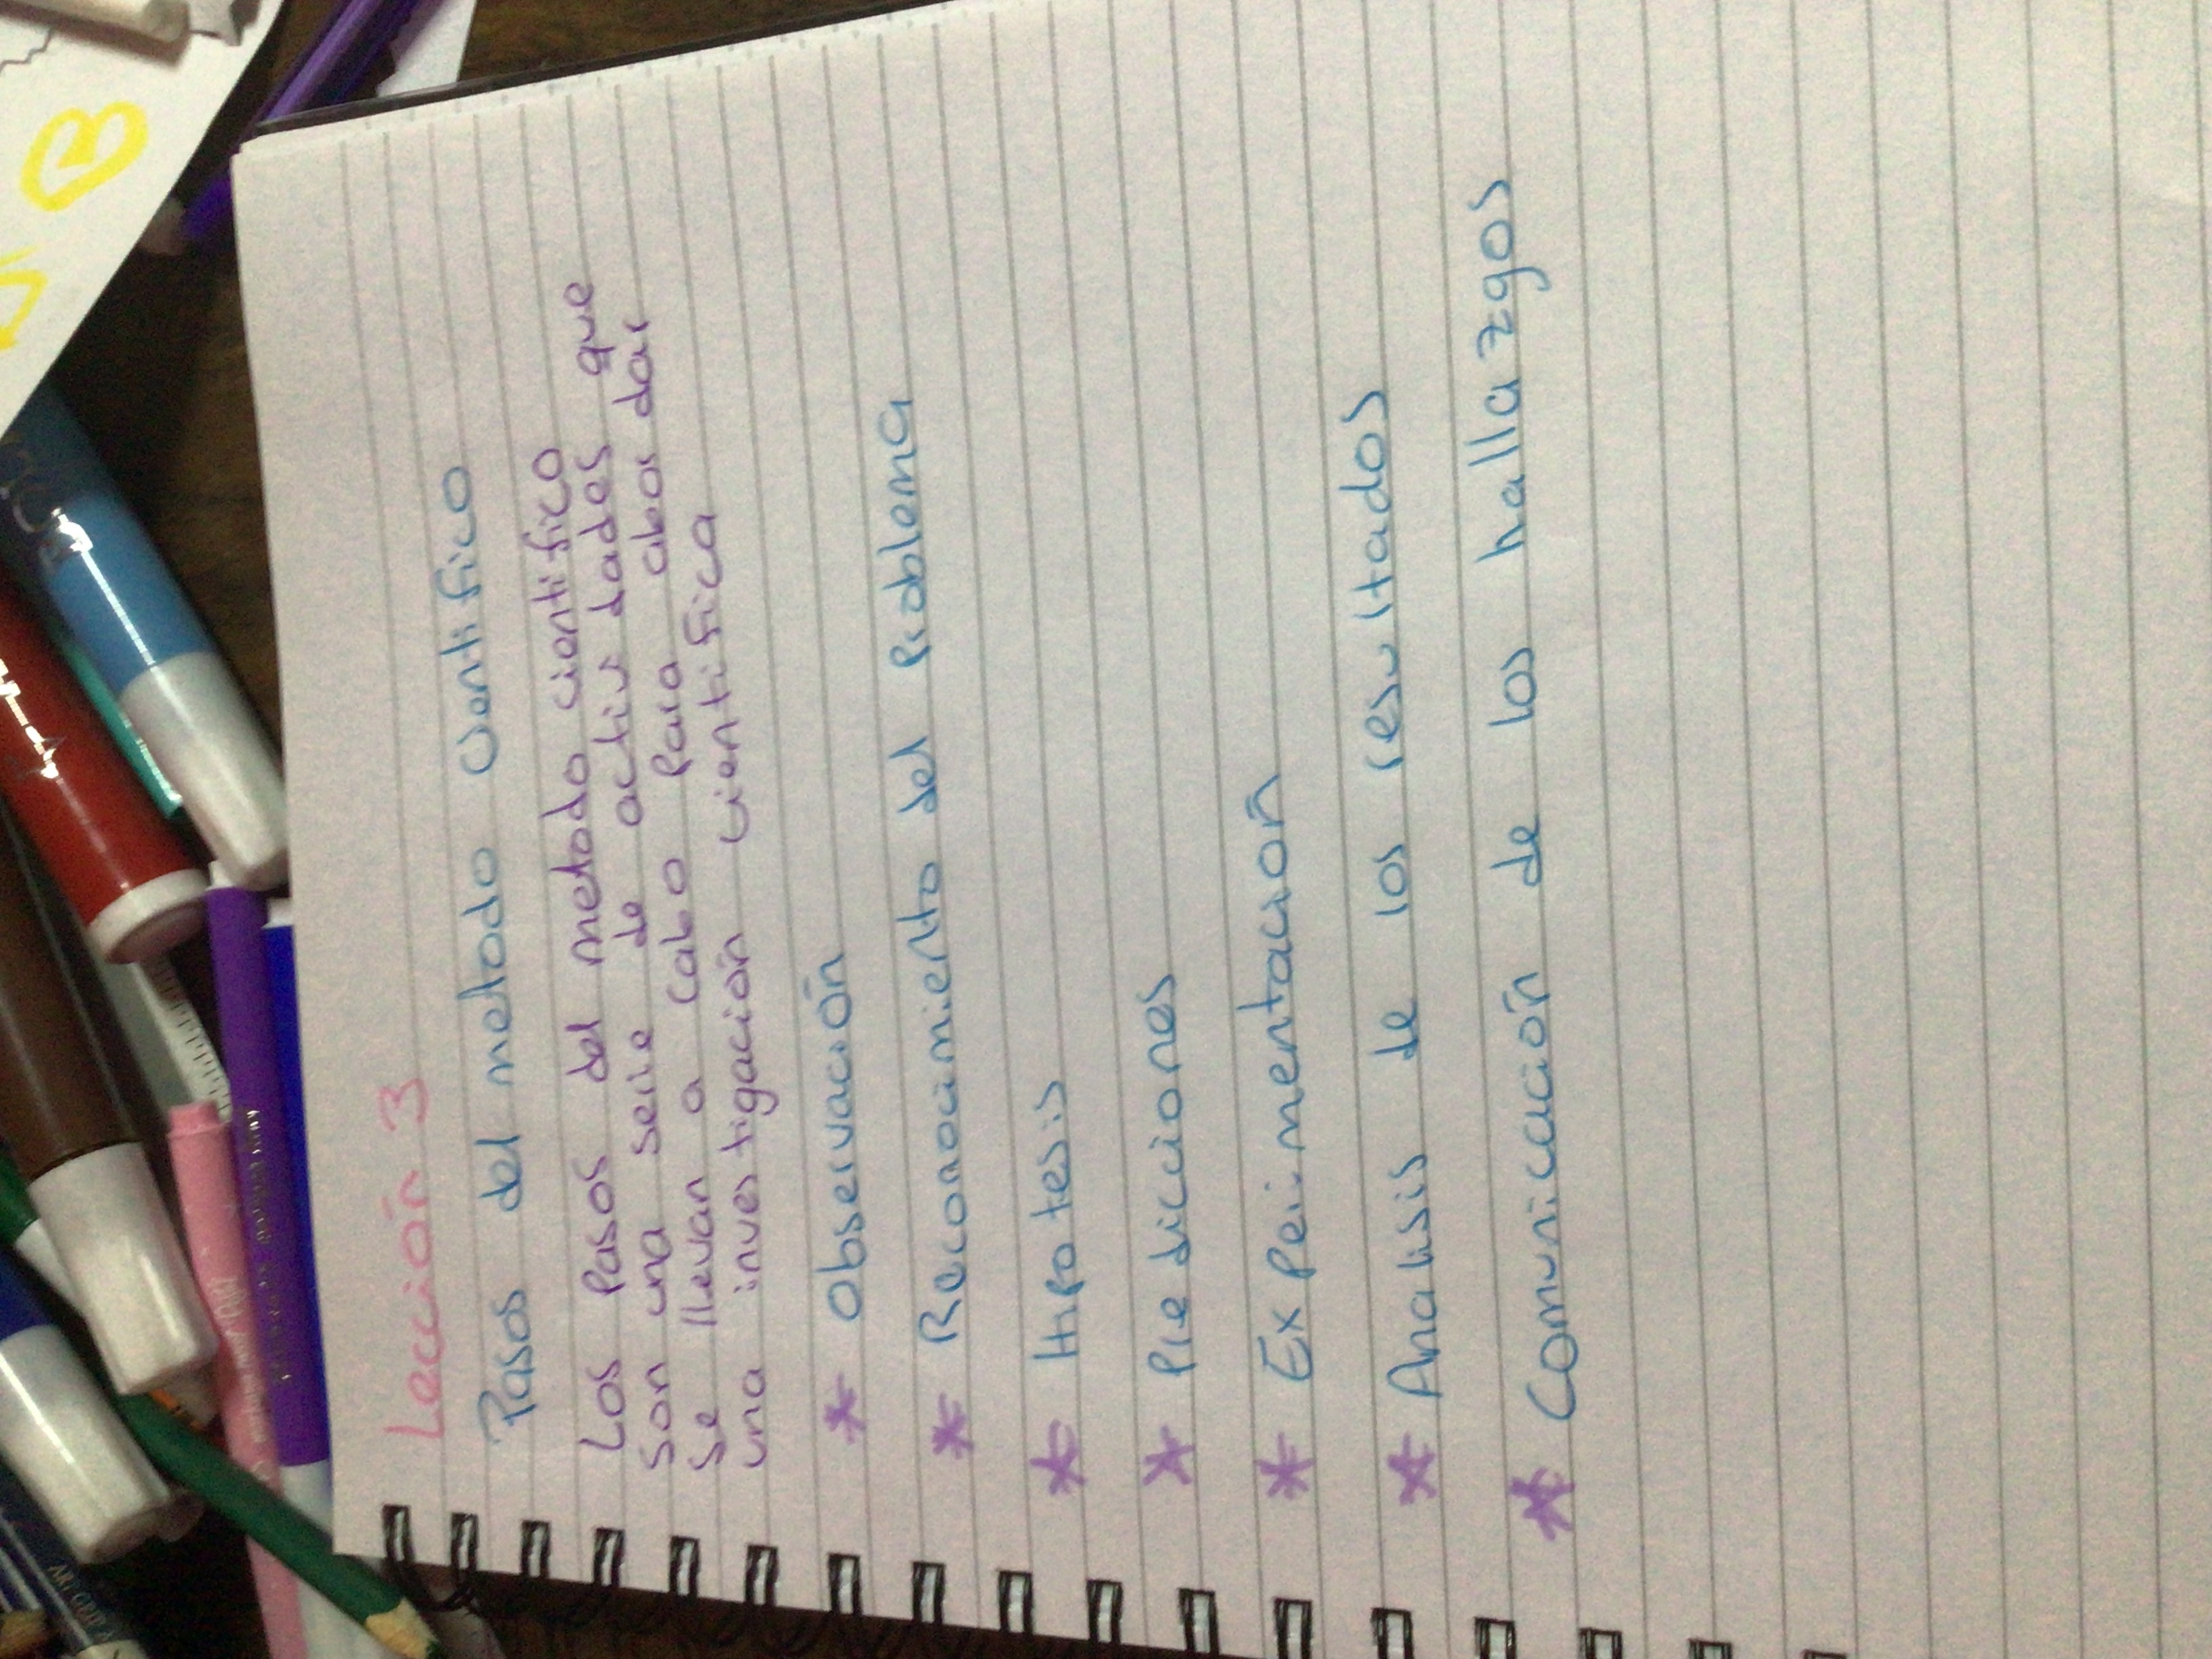 Lección 3
Pasos del metodo cientifico
Los Pasos del metodo cientifico
son una serie de actividades que
se llevan a cabo para abor dar
una investigación cientifica
* Observación
* Reconocimiento del Problema
* Hipotesis
* Predicciones
* Experimentación
* Analisis de los resultados
* Comunicación de los hallazgos